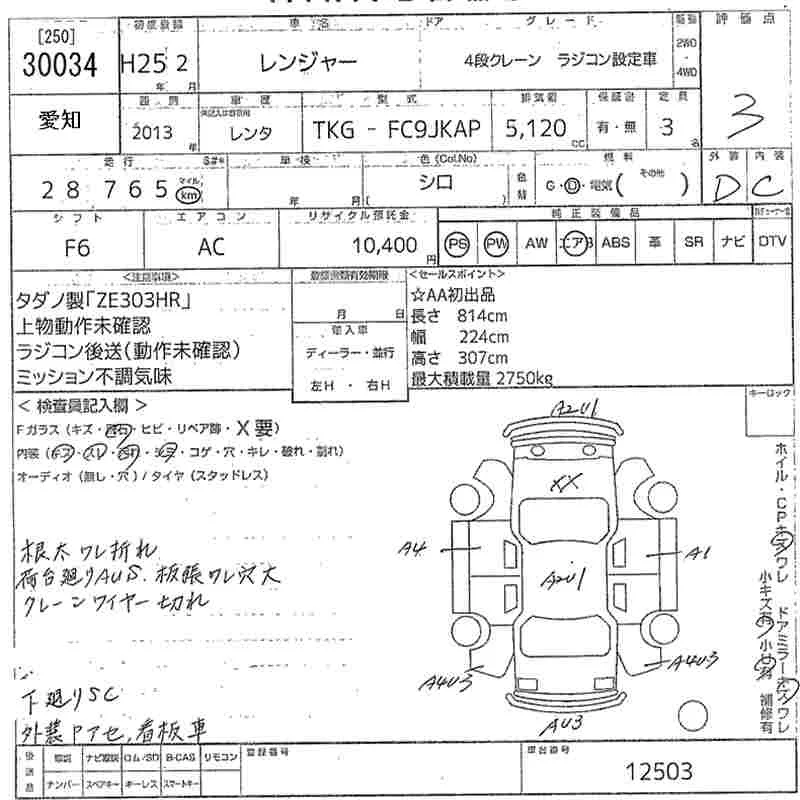 [250]
30034
初度登録
H25 2
年 月
車名
レンジャー
ドア
グレード
4段クレーン ラジコン設定車
2WD
4WD
評価点
3
愛知
2013
年
車歴
レンタ
型式
TKG - FC9JKAP
排気量
5,120
CC
保証書
有・無
定員
3
名
走行
28 765
マイル
km
車検
年 月
色 (Col.No)
シロ
( )
色替
燃料
G・D・電気( その他 )
外装
D
内装
C
シフト
F6
エアコン
AC
リサイクル預託金
10,400
円
純正装備品
PS
PW
AW
エアB
ABS
革
SR
ナビ
DTV
<注意事項>
タダノ製「ZE303HR」
上物動作未確認
ラジコン後送(動作未確認)
ミッション不調気味
月 日
輸入車
ディーラー・並行
左H ・ 右H
<セールスポイント>
☆AA初出品
長さ 814cm
幅 224cm
高さ 307cm
最大積載量 2750kg
< 検査員記入欄 >
Fガラス(キズ・飛石・ヒビ・リペア跡・X要)
内装(キズ・スレ・汚れ・シミ・コゲ・穴・キレ・破れ・割れ)
オーディオ(無し・穴)/タイヤ(スタッドレス)
根太ワレ折れ
荷台廻りAUS.板張ワレ穴大
クレーンワイヤー切れ
下廻りSC
外装Pアセ,看板車
A2U1
XX
A4
A1
A2U1
A4U3
A4U3
AU3
キーロック
ホイル・CPキズワレ
ドアミラーキズワレ
小キズ有 小凹有 補修有
後送品
取説
ナビ取説
ロム/SD
B-CAS
リモコン
ナンバー
スペアキー
キーレス
スマートキー
登録番号
車台番号
12503